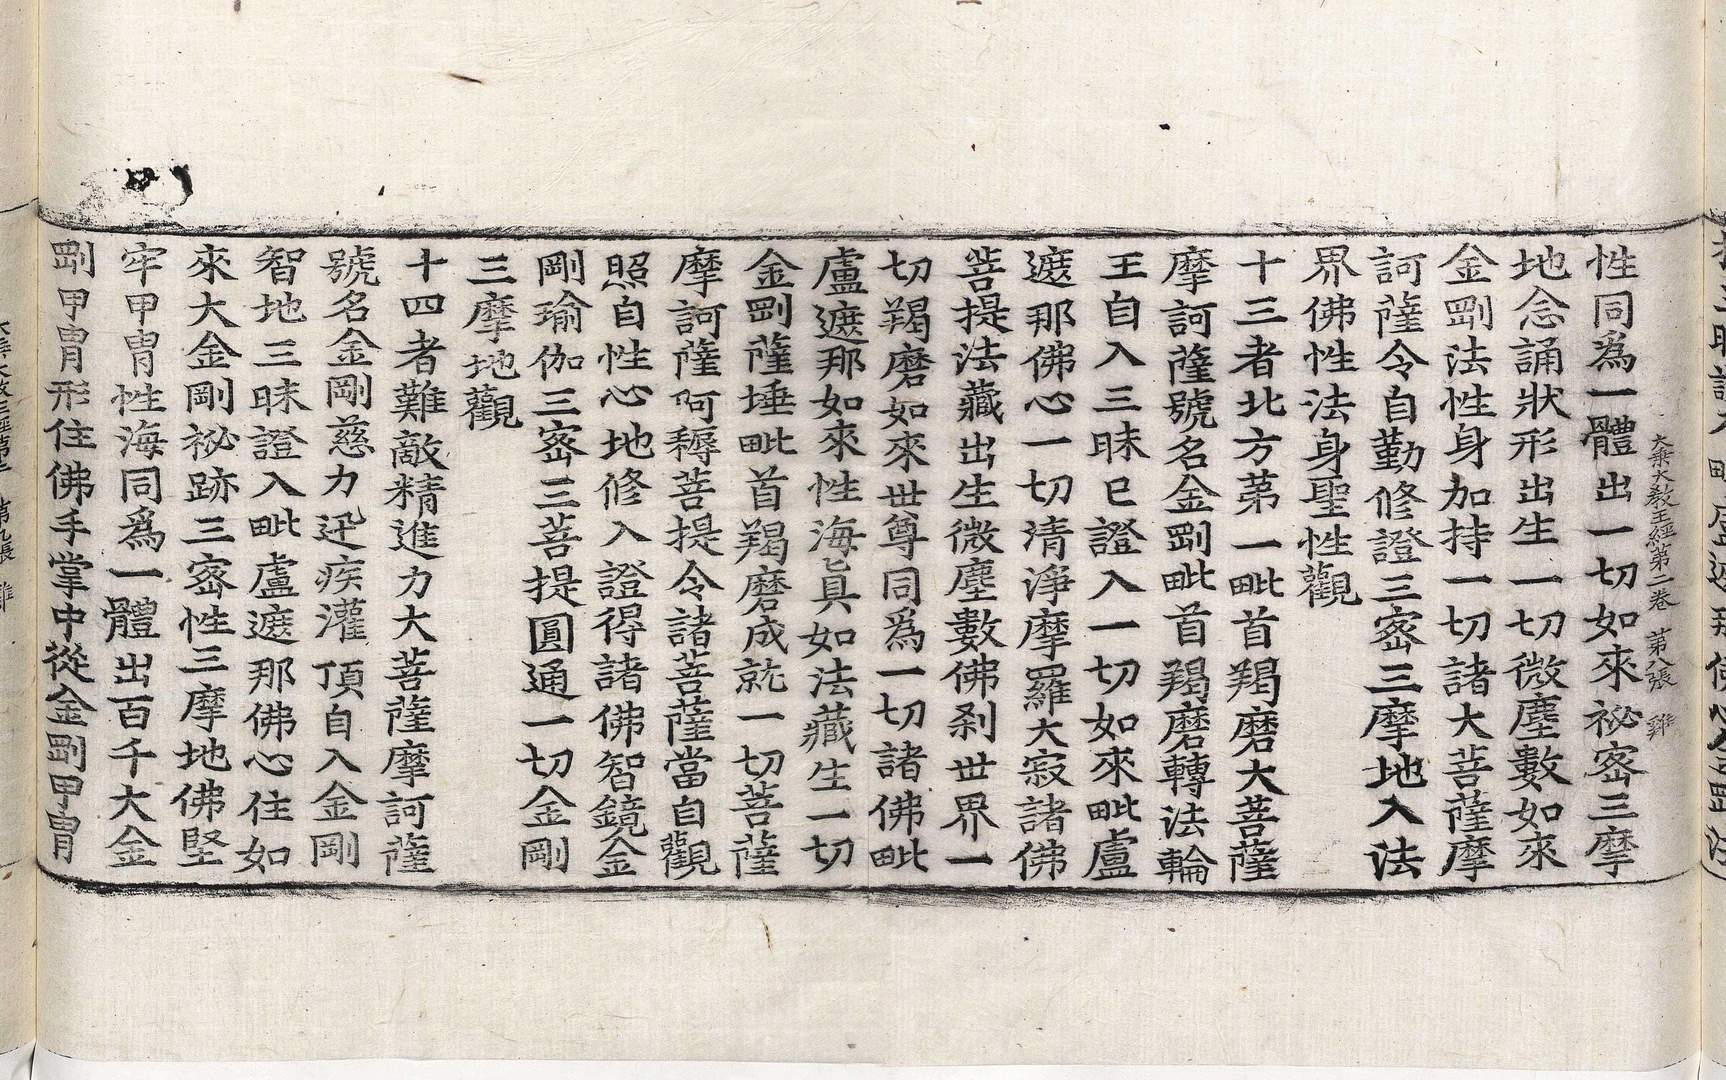 大乘大教王經第二卷 第八張 雞
性同為一體出一切如來祕密三摩
地念誦狀形出生一切微塵數如來
金剛法性身加持一切諸大菩薩摩
訶薩令自勤修證三密三摩地入法
界佛性法身聖性觀
十三者北方第一毗首羯磨大菩薩
摩訶薩號名金剛毗首羯磨轉法輪
王自入三昧已證入一切如來毗盧
遮那佛心一切清淨摩羅大寂諸佛
菩提法藏出生微塵數佛剎世界一
切羯磨如來世尊同為一切諸佛毗
盧遮那如來性海真如法藏生一切
金剛薩埵毗首羯磨成就一切菩薩
摩訶薩阿耨菩提令諸菩薩當自觀
照自性心地修入證得諸佛智鏡金
剛瑜伽三密三菩提圓通一切金剛
三摩地觀
十四者難敵精進力大菩薩摩訶薩
號名金剛慈力迅疾灌頂自入金剛
智地三昧證入毗盧遮那佛心住如
來大金剛祕跡三密性三摩地佛堅
牢甲冑性海同為一體出百千大金
剛甲冑形住佛手掌中從金剛甲冑